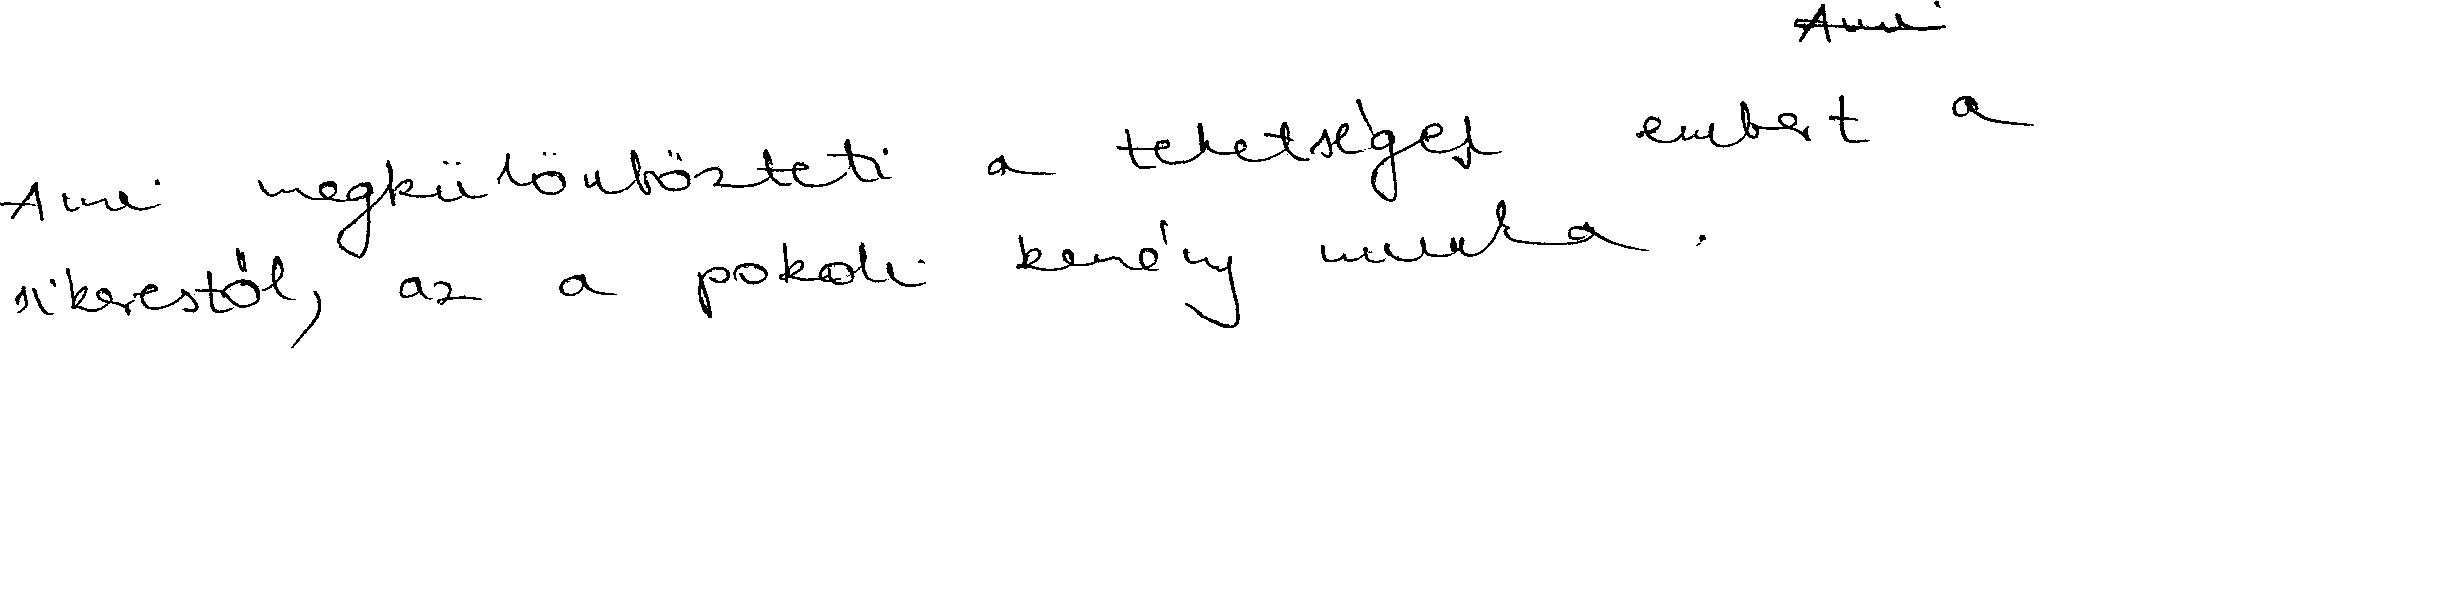 Ami
Ami megkülönbözteti a tehetséges embert a
sikerestől, az a pokoli kemény munka.